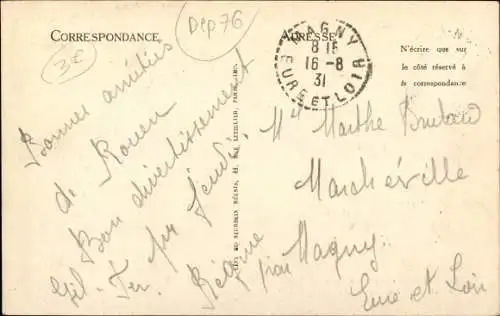 CORRESPONDANCE
Dep 76
3€
Bonnes amitiés
de Rouen
Bon divertissement
pour jeudi.
Régine
ADRESSE
MAGNY
8 15
16-8
31
EURE ET LOIR
N'écrire que sur
le côté réservé à
la correspondance
Mlle Marthe
Marchéville
par Magny
Eure et Loir